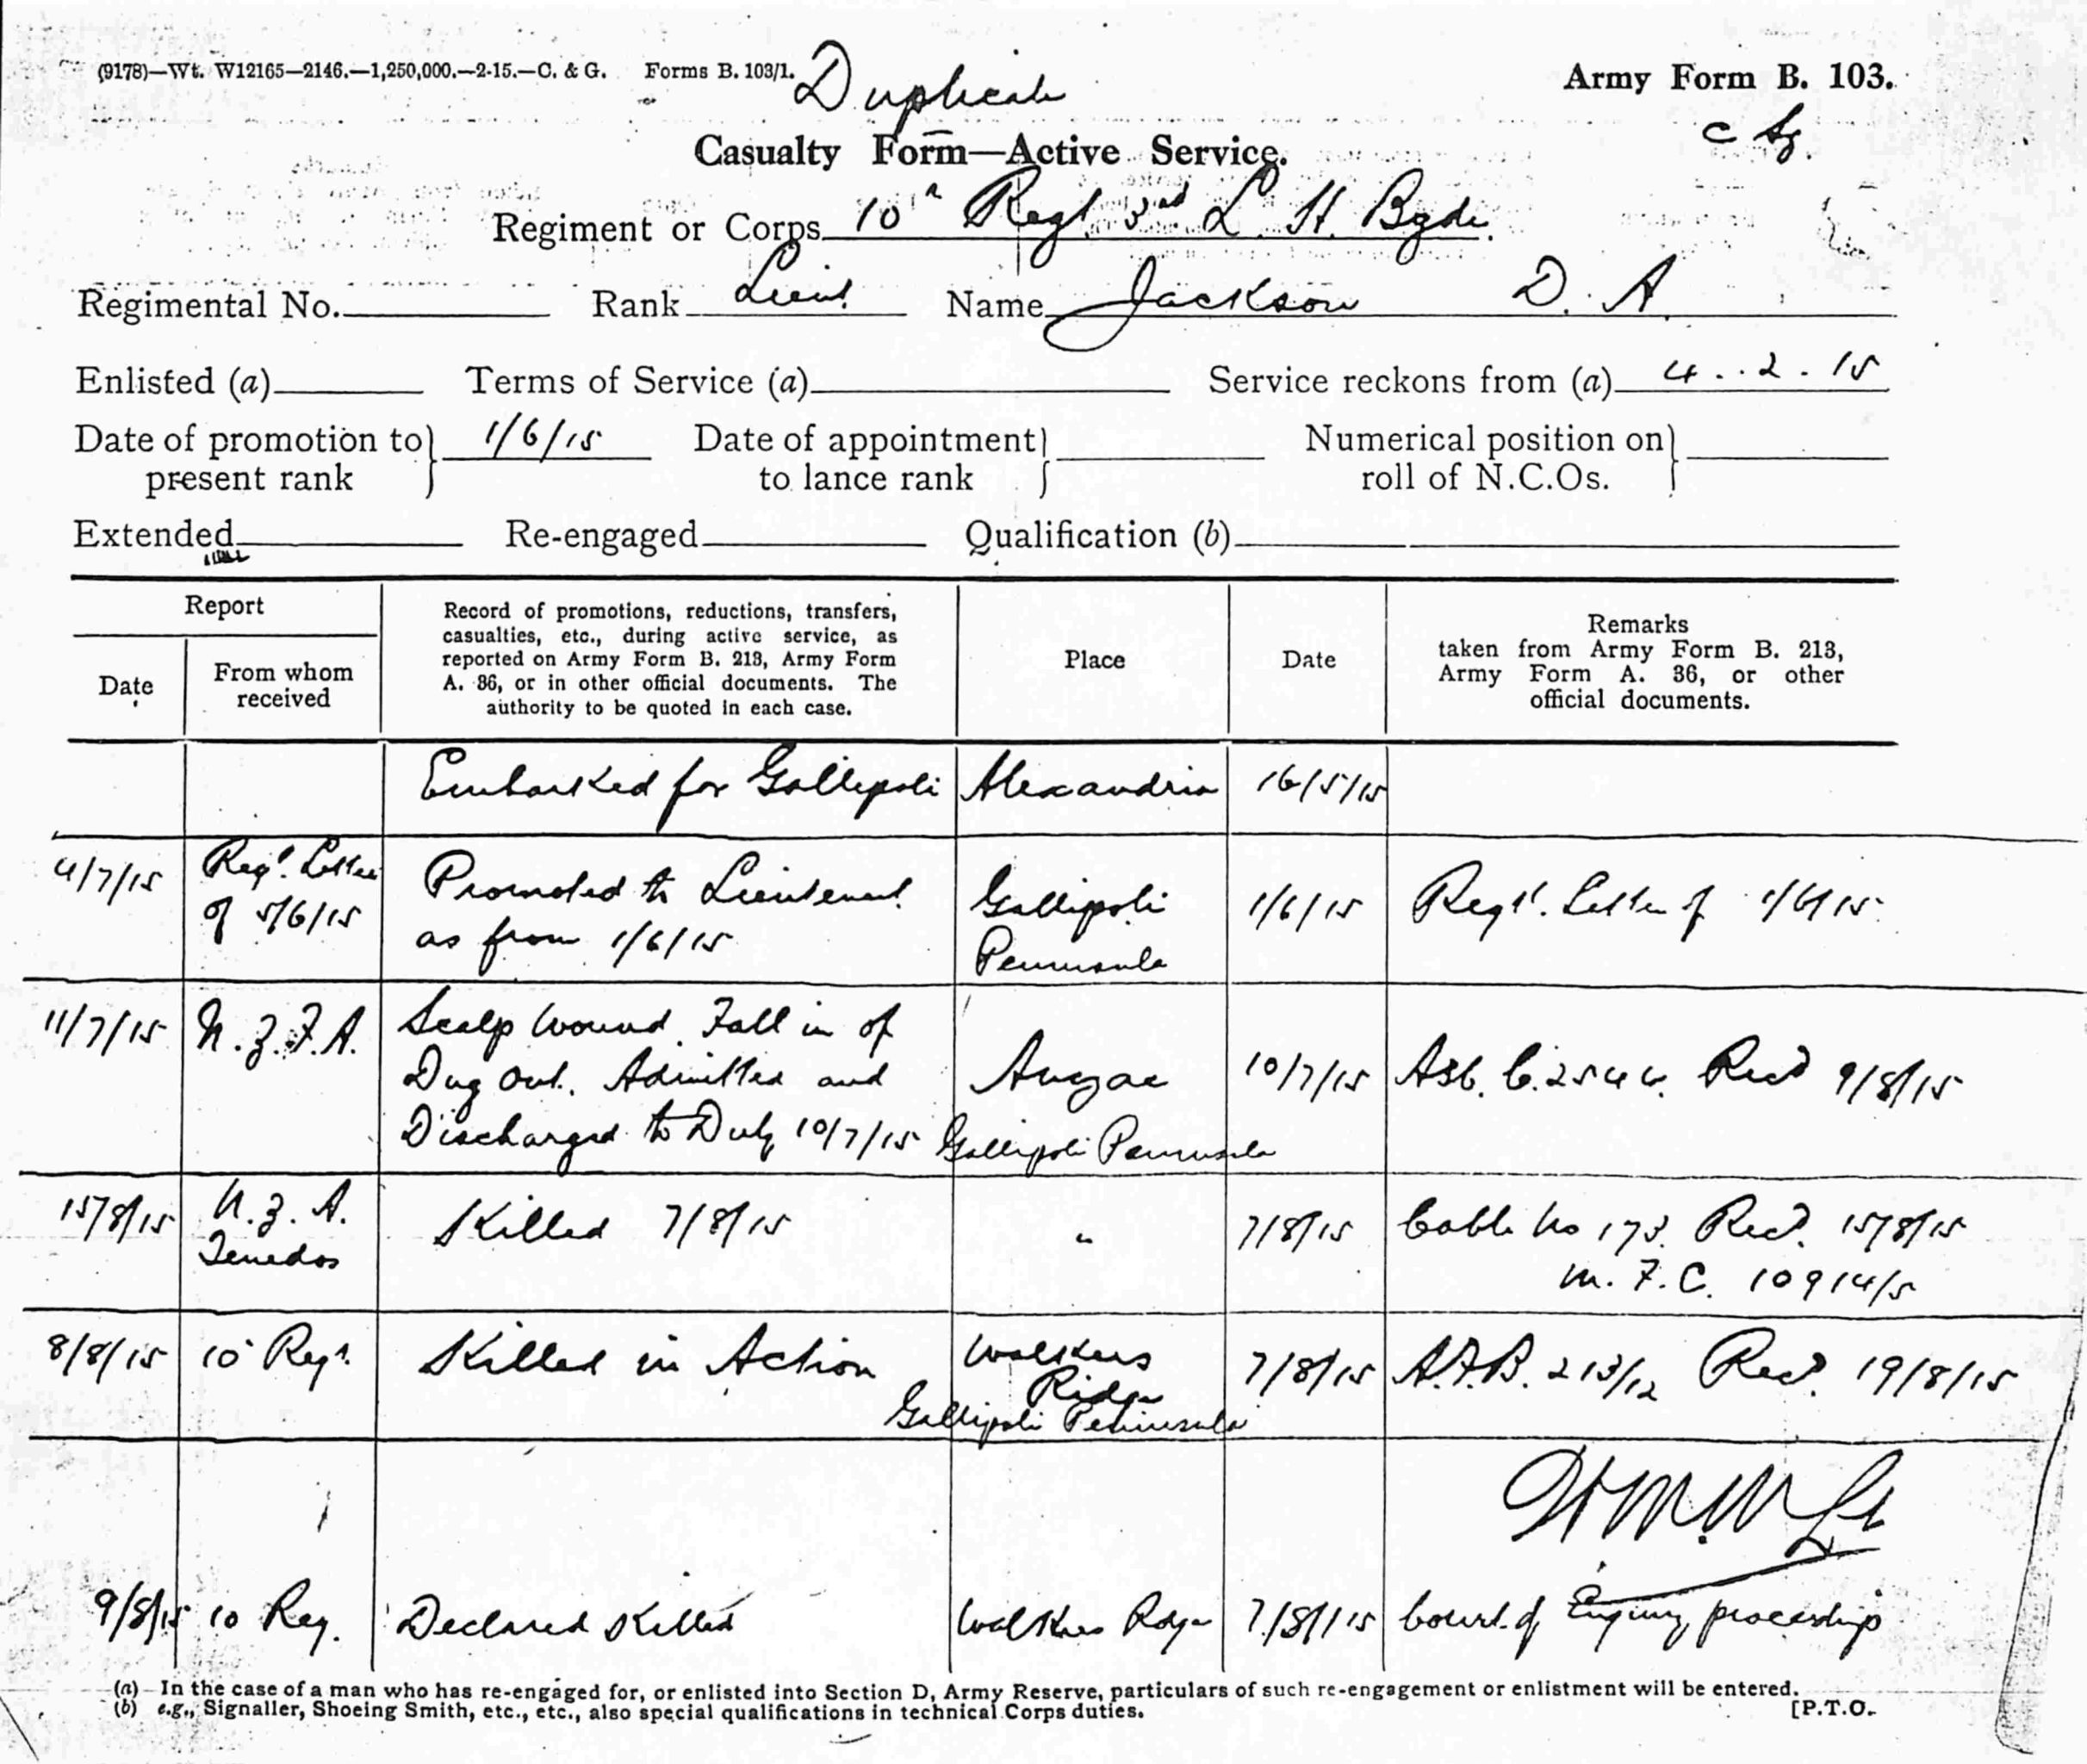 (9178)—Wt. W12165—2146.—1,250,000.—2-15.—C. & G. Forms B. 103/1. Duplicate
Army Form B. 103.
Casualty Form—Active Service.
Regiment or Corps 10th Regt 3rd L. H. Bgde.
Regimental No. Rank Lieut. Name Jackson D. A.
Enlisted (a) Terms of Service (a) Service reckons from (a) 4..2.15
Date of promotion to present rank } 1/6/15 Date of appointment to lance rank } Numerical position on roll of N.C.Os. }
Extended Re-engaged Qualification (b)
Report
Date
From whom received
Record of promotions, reductions, transfers,
casualties, etc., during active service, as
reported on Army Form B. 213, Army Form
A. 36, or in other official documents. The
authority to be quoted in each case.
Place
Date
Remarks
taken from Army Form B. 213,
Army Form A. 36, or other
official documents.
Embarked for Gallipoli Alexandria 16/5/15
4/7/15 Regt. Letter of 5/6/15
Promoted to Lieutenant
as from 1/6/15
Gallipoli
Peninsula
1/6/15
Regt. Letter of 1/6/15
11/7/15 N.Z.F.A.
Scalp Wound. Fall in of
Dug Out. Admitted and
Discharged to Duty 10/7/15
Anzac
Gallipoli Peninsula
10/7/15
Rec'd 9/8/15
15/8/15 N.Z.A.
Tenedos
Killed 7/8/15
"
7/8/15
Cable No 173. Recd. 15/8/15
M.F.C. 10914/5
8/8/15 10 Regt.
Killed in Action
Walkers
Ridge
Gallipoli Peninsula
7/8/15
A.F.B. 213/12 Recd. 19/8/15
9/8/15 10 Reg. Declared Killed Walkers Ridge 7/8/15 Court of Enquiry proceedings
(a) In the case of a man who has re-engaged for, or enlisted into Section D, Army Reserve, particulars of such re-engagement or enlistment will be entered.
(b) e.g., Signaller, Shoeing Smith, etc., etc., also special qualifications in technical Corps duties.
[P.T.O.